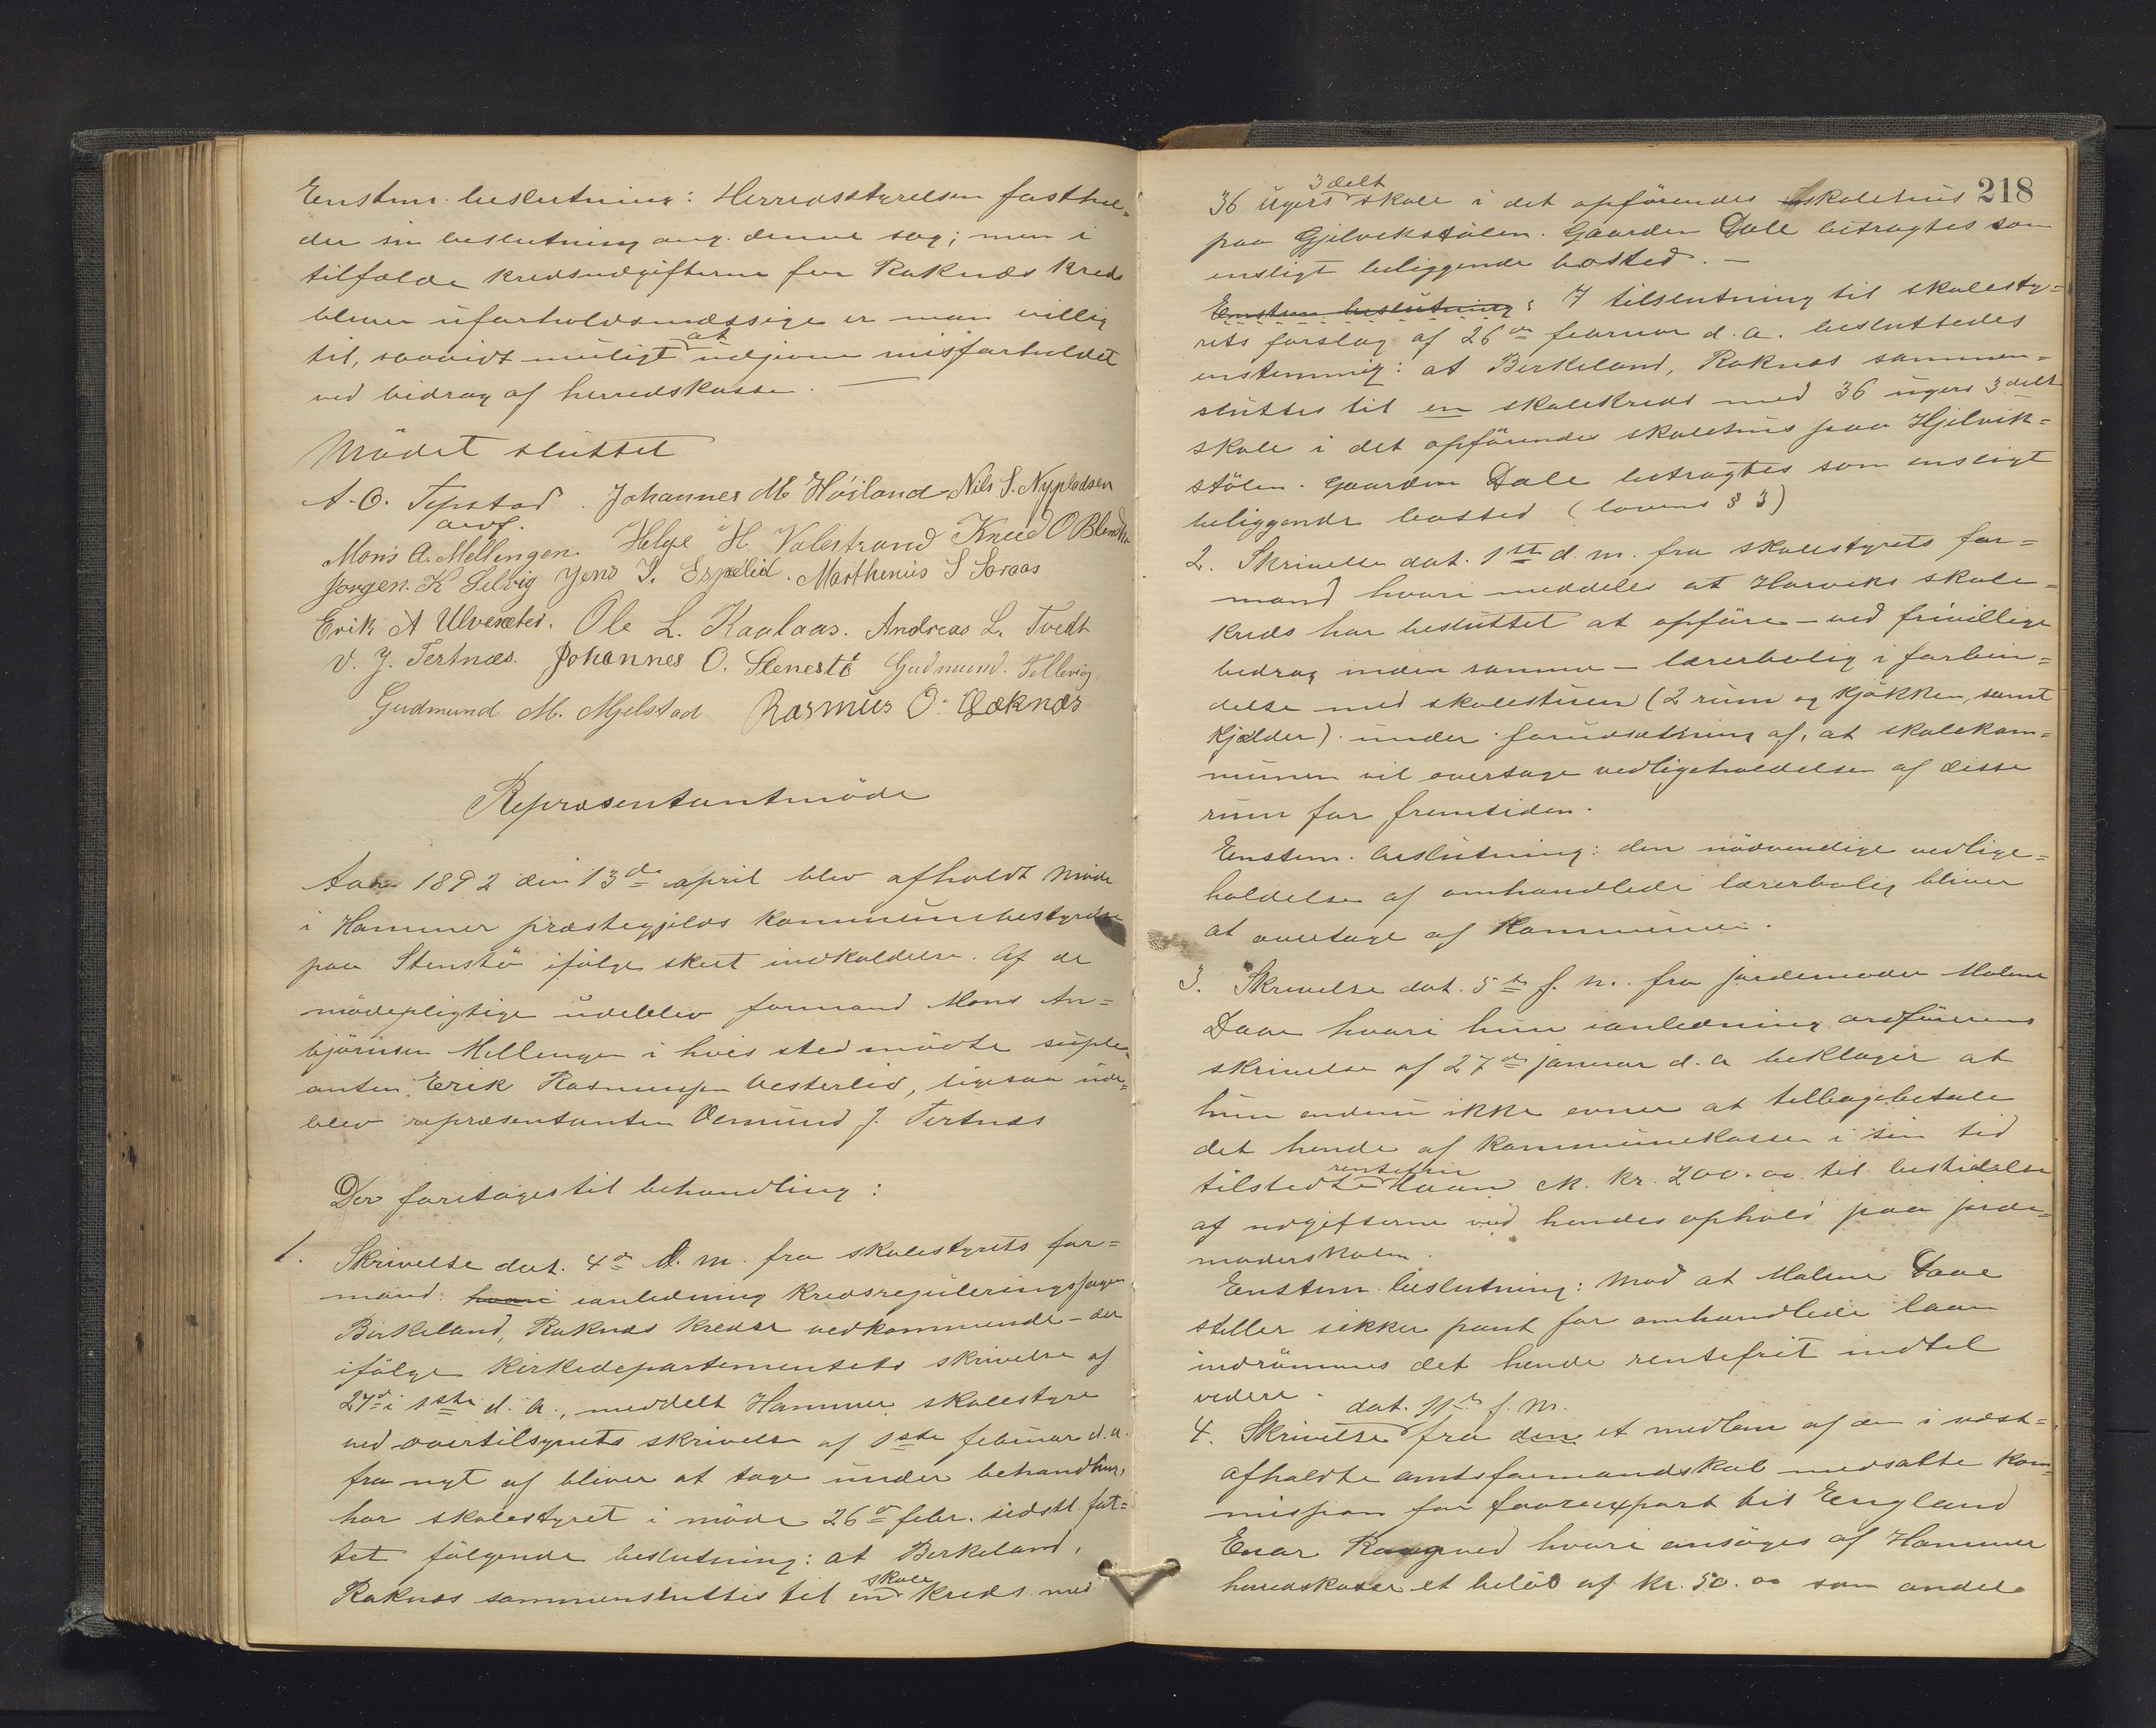 Enstem. beslutning: Herredsstyrelsen fasthol=
der sin beslutning ang. denne sag; men i
tilfælde kredsudgifterne for Raknæs kreds
bliver uforholdsmæssige er man villig
til, saavidt muligt at udjevne misforholdet
ved bidrag af herredskassen. —
Mödet sluttet
A. O. Tepstad Johannes M Höiland Nils S. Nypladsen
Mons A. Mellingen. Helge H Valestrand Knud O Blindh
Jörgen. K Selvig Jens I. Espelid. Marthenus S Soraas
Erik A Ulvesæter. Ole L. Kaalaas. Andreas L. Tvedt
V. J. Tertnæs. Johannes O. Stenestö Gudmund. Sellevig
Gudmund M. Mjelstad Rasmus O. Ræknæs
Repræsentantmöde
Aar 1892 den 13de april blev afholdt möde
i Hammer præstegjelds kommunebestyrelse
paa Stenstö ifölge skeet indkaldelse. Af de
mödepligtige udeblev formand Mons An=
björnsen Mellingen i hvis sted mödte suple=
anten Erik Rasmussen Vesterlid, ligesaa ude=
blev repræsentanten Osmund J. Tertnæs
Der foretoges til behandling:
1. Skrivelse dat. 4de d. m. fra skolestyrets for=
mand. hvori ianledning kredsreguleringssagen
Birkeland, Raknæs kredse vedkommende – der
ifölge Kirkedepartementets skrivelse af
27de i 1ste d. a., meddelt Hammer skolestyre
ved overtilsynets skrivelse af 1ste februar d. a.
fra nyt af bliver at tage under behandling,
har skolestyret i möde 26de febr. sidstl. fat=
tet fölgende beslutning: at Birkeland,
Raknæs sammensluttes til en skole kreds med
218
36 ugers 3 delt skole i det opförendes skolehus
paa Gjelvikstölen. Gaarden Dale betragtes som
ensligt beliggende bosted. —
Enstem beslutning: I tilslutning til skolesty=
rets forslag af 26de februar d. a. besluttedes
enstemmig: at Birkeland, Raknæs sammen=
sluttes til en skolekreds med 36 ugers 3 delt
skole i det opförendes skolehus paa Hjelvik=
stölen. Gaarden Dale betragtes som ensligt
beliggende bosted (lovens § 3)
2. Skrivelse dat. 1ste d. m. fra skolestyrets for=
mand hvori meddeles at Horviks skole=
kreds har besluttet at opföre – ved frivillige
bedrag inden samme – lærerbolig i forbin=
delse med skolestuen (2 rum og kjökken, samt
kjælder) under forudsætning af, at skolekom=
munen vil overtage vedligeholdelsen af disse
rum for fremtiden.
Enstem. beslutning: den nödvendige vedlige=
holdelse af omhandlede lærerbolig bliver
at overtage af Kommunen.
3. Skrivelse dat. 5te f. m. fra jordemoder Malene
Daae hvori hun ianledning ordförerens
skrivelse af 27de januar d. a beklager at
hun endnu ikke evner at tilbagebetale
det hende af kommunekassen i sin tid
tilstedte rentefrie laan stk. kr. 200.00 til bestridelse
af udgifterne ved hendes ophold paa jorde=
moderskolen.
Enstem. beslutning: Mod at Malene Daae
stiller sikker pant for omhandlede laan
indrömmes det hende rentefrit indtil
videre.
4. Skrivelse dat. 11te f. m. fra den et medlem af den i sidst=
afholdte amtsformandskab nedsatte kom=
mission for faareexport til England
Enar ved hvori ansöges af Hammer
herredskasse et belöb af kr. 50.00 som andel